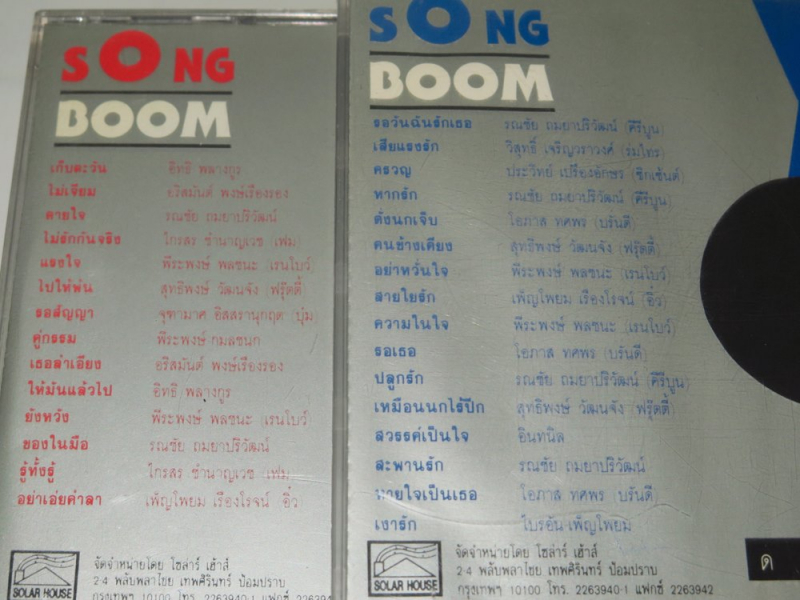 SONG
BOOM
เก็บตะวัน อิทธิ พลางกูร
ไม่เจียม อริสมันต์ พงษ์เรืองรอง
ตายใจ รณชัย ถมยาปริวัฒน์
ไม่รักกันจริง ไกรสร ชำนาญเวช (เฟม)
แรงใจ พีระพงษ์ พลชนะ (เรนโบว์)
ไปให้พ้น สุทธิพงษ์ วัฒนจัง (ฟรุ๊ตตี้)
รอสัญญา จุฑามาศ อิสสรานุกฤต (ปุ้ม)
คู่กรรม พีระพงษ์ กมลชนก
เธอลำเอียง อริสมันต์ พงษ์เรืองรอง
ให้มันแล้วไป อิทธิ พลางกูร
ยังหวัง พีระพงษ์ พลชนะ (เรนโบว์)
ของในมือ รณชัย ถมยาปริวัฒน์
รู้ทั้งรู้ ไกรสร ชำนาญเวช (เฟม
อย่าเอ่ยคำลา เพ็ญโพยม เรืองโรจน์ อิ๋ว
จัดจำหน่ายโดย โซล่าร์ เฮ้าส์
2-4 พลับพลาไชย เทพศิรินทร์ ป้อมปราบ
กรุงเทพฯ 10100 โทร. 2263940-1 แฟกซ์ 226394
SOLAR HOUSE
SONG
BOOM
รอวันฉันรักเธอ รณชัย ถมยาปริวัฒน์ (คีรีบูน)
เสียแรงรัก วิสุทธิ์ เจริญวราวงศ์ (รุ่มไทร)
ครวญ ประวิทย์ เปรืองอักษร (ซิกเซ้นต์)
หากรัก รณชัย ถมยาปริวัฒน์ (คีรีบูน)
ดั่งนกเจ็บ โอภาส ทศพร (บรั่นดี)
คนข้างเคียง สุทธิพงษ์ วัฒนจัง (ฟรุ๊ตตี้)
อย่าหวั่นใจ พีระพงษ์ พลชนะ (เรนโบว์)
สายใยรัก เพ็ญโพยม เรืองโรจน์ (อิ๋ว)
ความในใจ พีระพงษ์ พลชนะ (เรนโบว์)
รอเธอ โอภาส ทศพร (บรั่นดี)
ปลูกรัก รณชัย ถมยาปริวัฒน์ (คีรีบูน)
เหมือนนกไร้ปีก สุทธิพงษ์ วัฒนจัง (ฟรุ๊ตตี้)
สวรรค์เป็นใจ อินทนิล
สะพานรัก รณชัย ถมยาปริวัฒน์
หายใจเป็นเธอ โอภาส ทศพร (บรั่นดี)
เงารัก ไบรอัน-เพ็ญโพยม
จัดจำหน่ายโดย โซล่าร์ เฮ้าส์
2-4 พลับพลาไชย เทพศิรินทร์ ป้อมปราบ
กรุงเทพฯ 10100 โทร. 2263940-1 แฟกซ์ 2263942
SOLAR HOUSE
ด